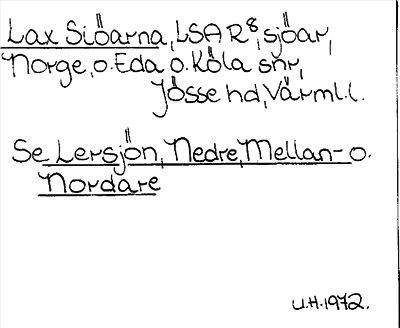 Lax Siöarna, LSA R8, sjöar,
Norge, o. Eda o. Köla snr,
Jösse hd, Värml. l.
Se Lersjön, Nedre, Mellan- o.
Nordare
U.H. 1972.